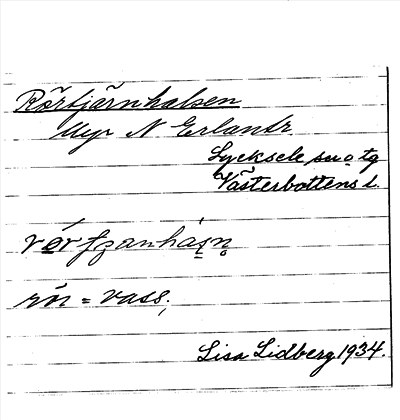 Rörtjärnhalsen
Myr N Erlandtr.
Lycksele sn o tg
Västerbottens l.
rör = vass;
Lisa Lidberg 1934.